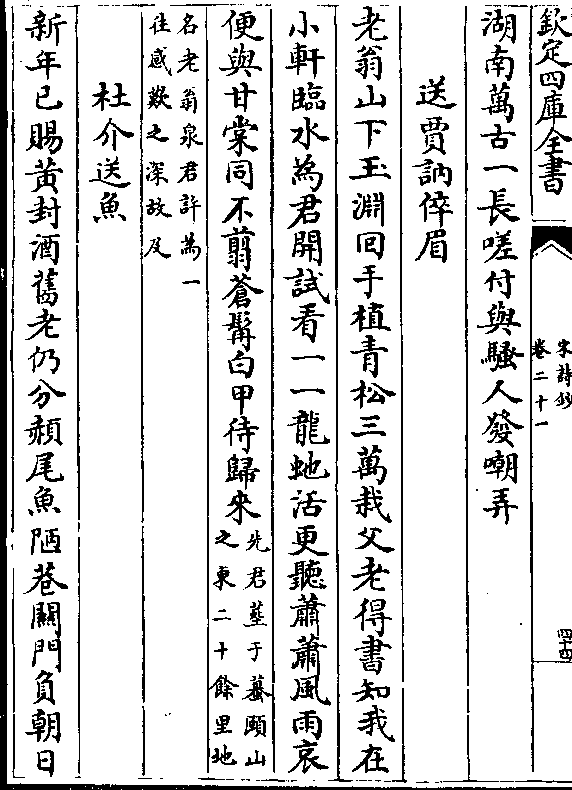 欽定四庫全書
宋詩鈔
卷二十一
四十四
湖南萬古一長嗟付與騷人發嘲弄
送賈訥倅眉
老翁山下玉淵回手植青松三萬栽父老得書知我在
小軒臨水為君開試看一一龍虵活更聽蕭蕭風雨哀
便與甘棠同不翦蒼髯白甲待歸來
先君塟于蟇頤山
之東二十餘里地
名老翁泉君許為一
徃感歎之深故及
杜介送魚
新年已賜黄封酒舊老仍分赬尾魚陋巷關門負朝日